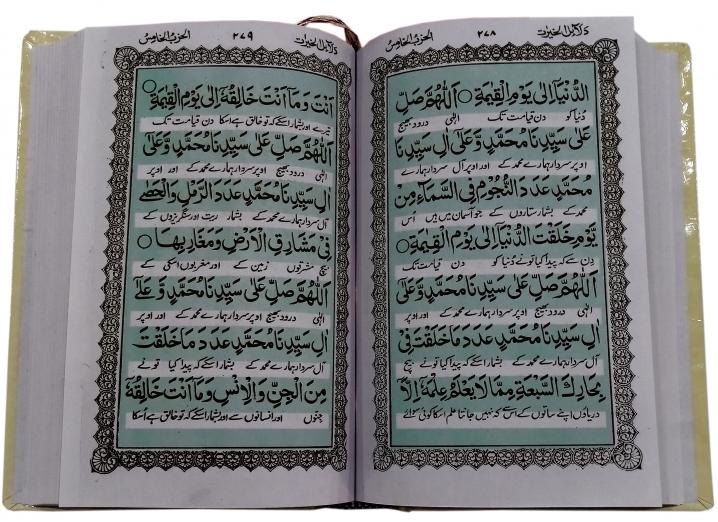 دلائل الخیرات ۲۷۸ الحزب الخامس
الدُّنْيَآ اِلٰى يَوْمِ الْقِيٰمَةِ ○ اَللّٰهُمَّ صَلِّ
دُنیا کو دن قیامت تک الٰہی درود بھیج
عَلٰى سَيِّدِنَا مُحَمَّدٍ وَّعَلٰٓى اٰلِ سَيِّدِنَا
اوپر سردار ہمارے محمد کے اور اوپر آل سردار ہمارے
مُحَمَّدٍ عَدَدَ النُّجُوْمِ فِى السَّمَآءِ مِنْ
محمد کے بشمار ستاروں کے جو آسمان میں ہیں اُس
يَّوْمِ خَلَقْتَ الدُّنْيَآ اِلٰى يَوْمِ الْقِيٰمَةِ ○
دن سے کہ پیدا کیا تو نے دُنیا کو دن قیامت تک
اَللّٰهُمَّ صَلِّ عَلٰى سَيِّدِنَا مُحَمَّدٍ وَّعَلٰٓى
الٰہی درود بھیج اوپر سردار ہمارے محمد کے اور اوپر
اٰلِ سَيِّدِنَا مُحَمَّدٍ عَدَدَ مَا خَلَقْتَ فِىْ
آل سردار ہمارے محمد کے بشمار اسکے کہ پیدا کیا تو نے بیچ
بِحَارِكَ السَّبْعَةِ مِمَّا لَا يَعْلَمُ عِلْمَهٗ اِلَّآ
دریاؤں اپنے ساتوں کے اس سے کہ نہیں جانتا علم اسکا کوئی سوائے
دلائل الخیرات ۲۷۹ الحزب الخامس
اَنْتَ وَمَآ اَنْتَ خَالِقُهٗٓ اِلٰى يَوْمِ الْقِيٰمَةِ ○
تیرے اور بشمار اسکے کہ تو خالق ہے اسکا دن قیامت تک
اَللّٰهُمَّ صَلِّ عَلٰى سَيِّدِنَا مُحَمَّدٍ وَّعَلٰٓى
الٰہی درود بھیج اوپر سردار ہمارے محمد کے اور اوپر
اٰلِ سَيِّدِنَا مُحَمَّدٍ عَدَدَ الرَّمْلِ وَالْحَصٰى
آل سردار ہمارے محمد کے بشمار ریت اور سنگریزوں کے
فِىْ مَشَارِقِ الْاَرْضِ وَمَغَارِبِهَا ○
بیچ مشرقوں زمین کے اور مغربوں اسکی کے
اَللّٰهُمَّ صَلِّ عَلٰى سَيِّدِنَا مُحَمَّدٍ وَّعَلٰٓى
الٰہی درود بھیج اوپر سردار ہمارے محمد کے اور اوپر
اٰلِ سَيِّدِنَا مُحَمَّدٍ عَدَدَ مَا خَلَقْتَ
آل سردار ہمارے محمد کے بشمار اسکے کہ پیدا کیا تو نے
مِنَ الْجِنِّ وَالْاِنْسِ وَمَآ اَنْتَ خَالِقُهٗٓ
جنوں اور انسانوں سے اور بشمار اسکے کہ تو خالق ہے اُسکا